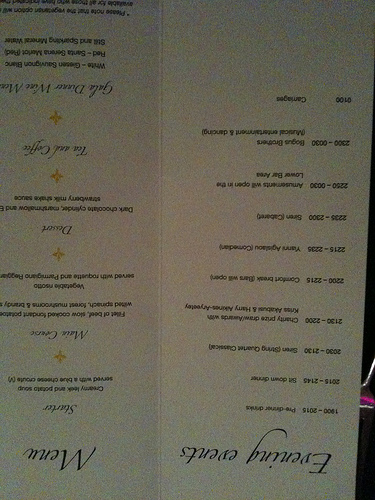 Evening events
1900 – 2015 Pre-dinner drinks
2015 – 2145 Sit down dinner
2030 – 2130 Siren (String Quartet Classical)
2130 – 2200 Charity prize draw/Awards with
Kriss Akabusi & Harry Aikines-Aryeetey
2200 – 2215 Comfort break (Bars will open)
2215 – 2235 Yianni Agisilaou (Comedian)
2235 – 2300 Siren (Cabaret)
2250 – 0030 Amusements will open in the
Lower Bar Area
2300 – 0030 Bogus Brothers
(Musical entertainment & dancing)
0100 Carriages
Menu
Starter
Creamy leek and potato soup
served with a blue cheese croute (v)
Main Course
Fillet of beef, slow cooked fondant potatoe
wilted spinach, forest mushrooms & brandy
Vegetable risotto
served with roquette and Parmigiano Reggian
Dessert
Dark chocolate cylinder, marshmallow and
strawberry milk shake sauce
Tea and Coffee
Gala Dinner Wine Menu
White – Giesen Sauvignon Blanc
Red – Santa Serena Merlot (Red)
Still and Sparkling Mineral Water
* Please note that the vegetarian option will
available for all those who have indicated